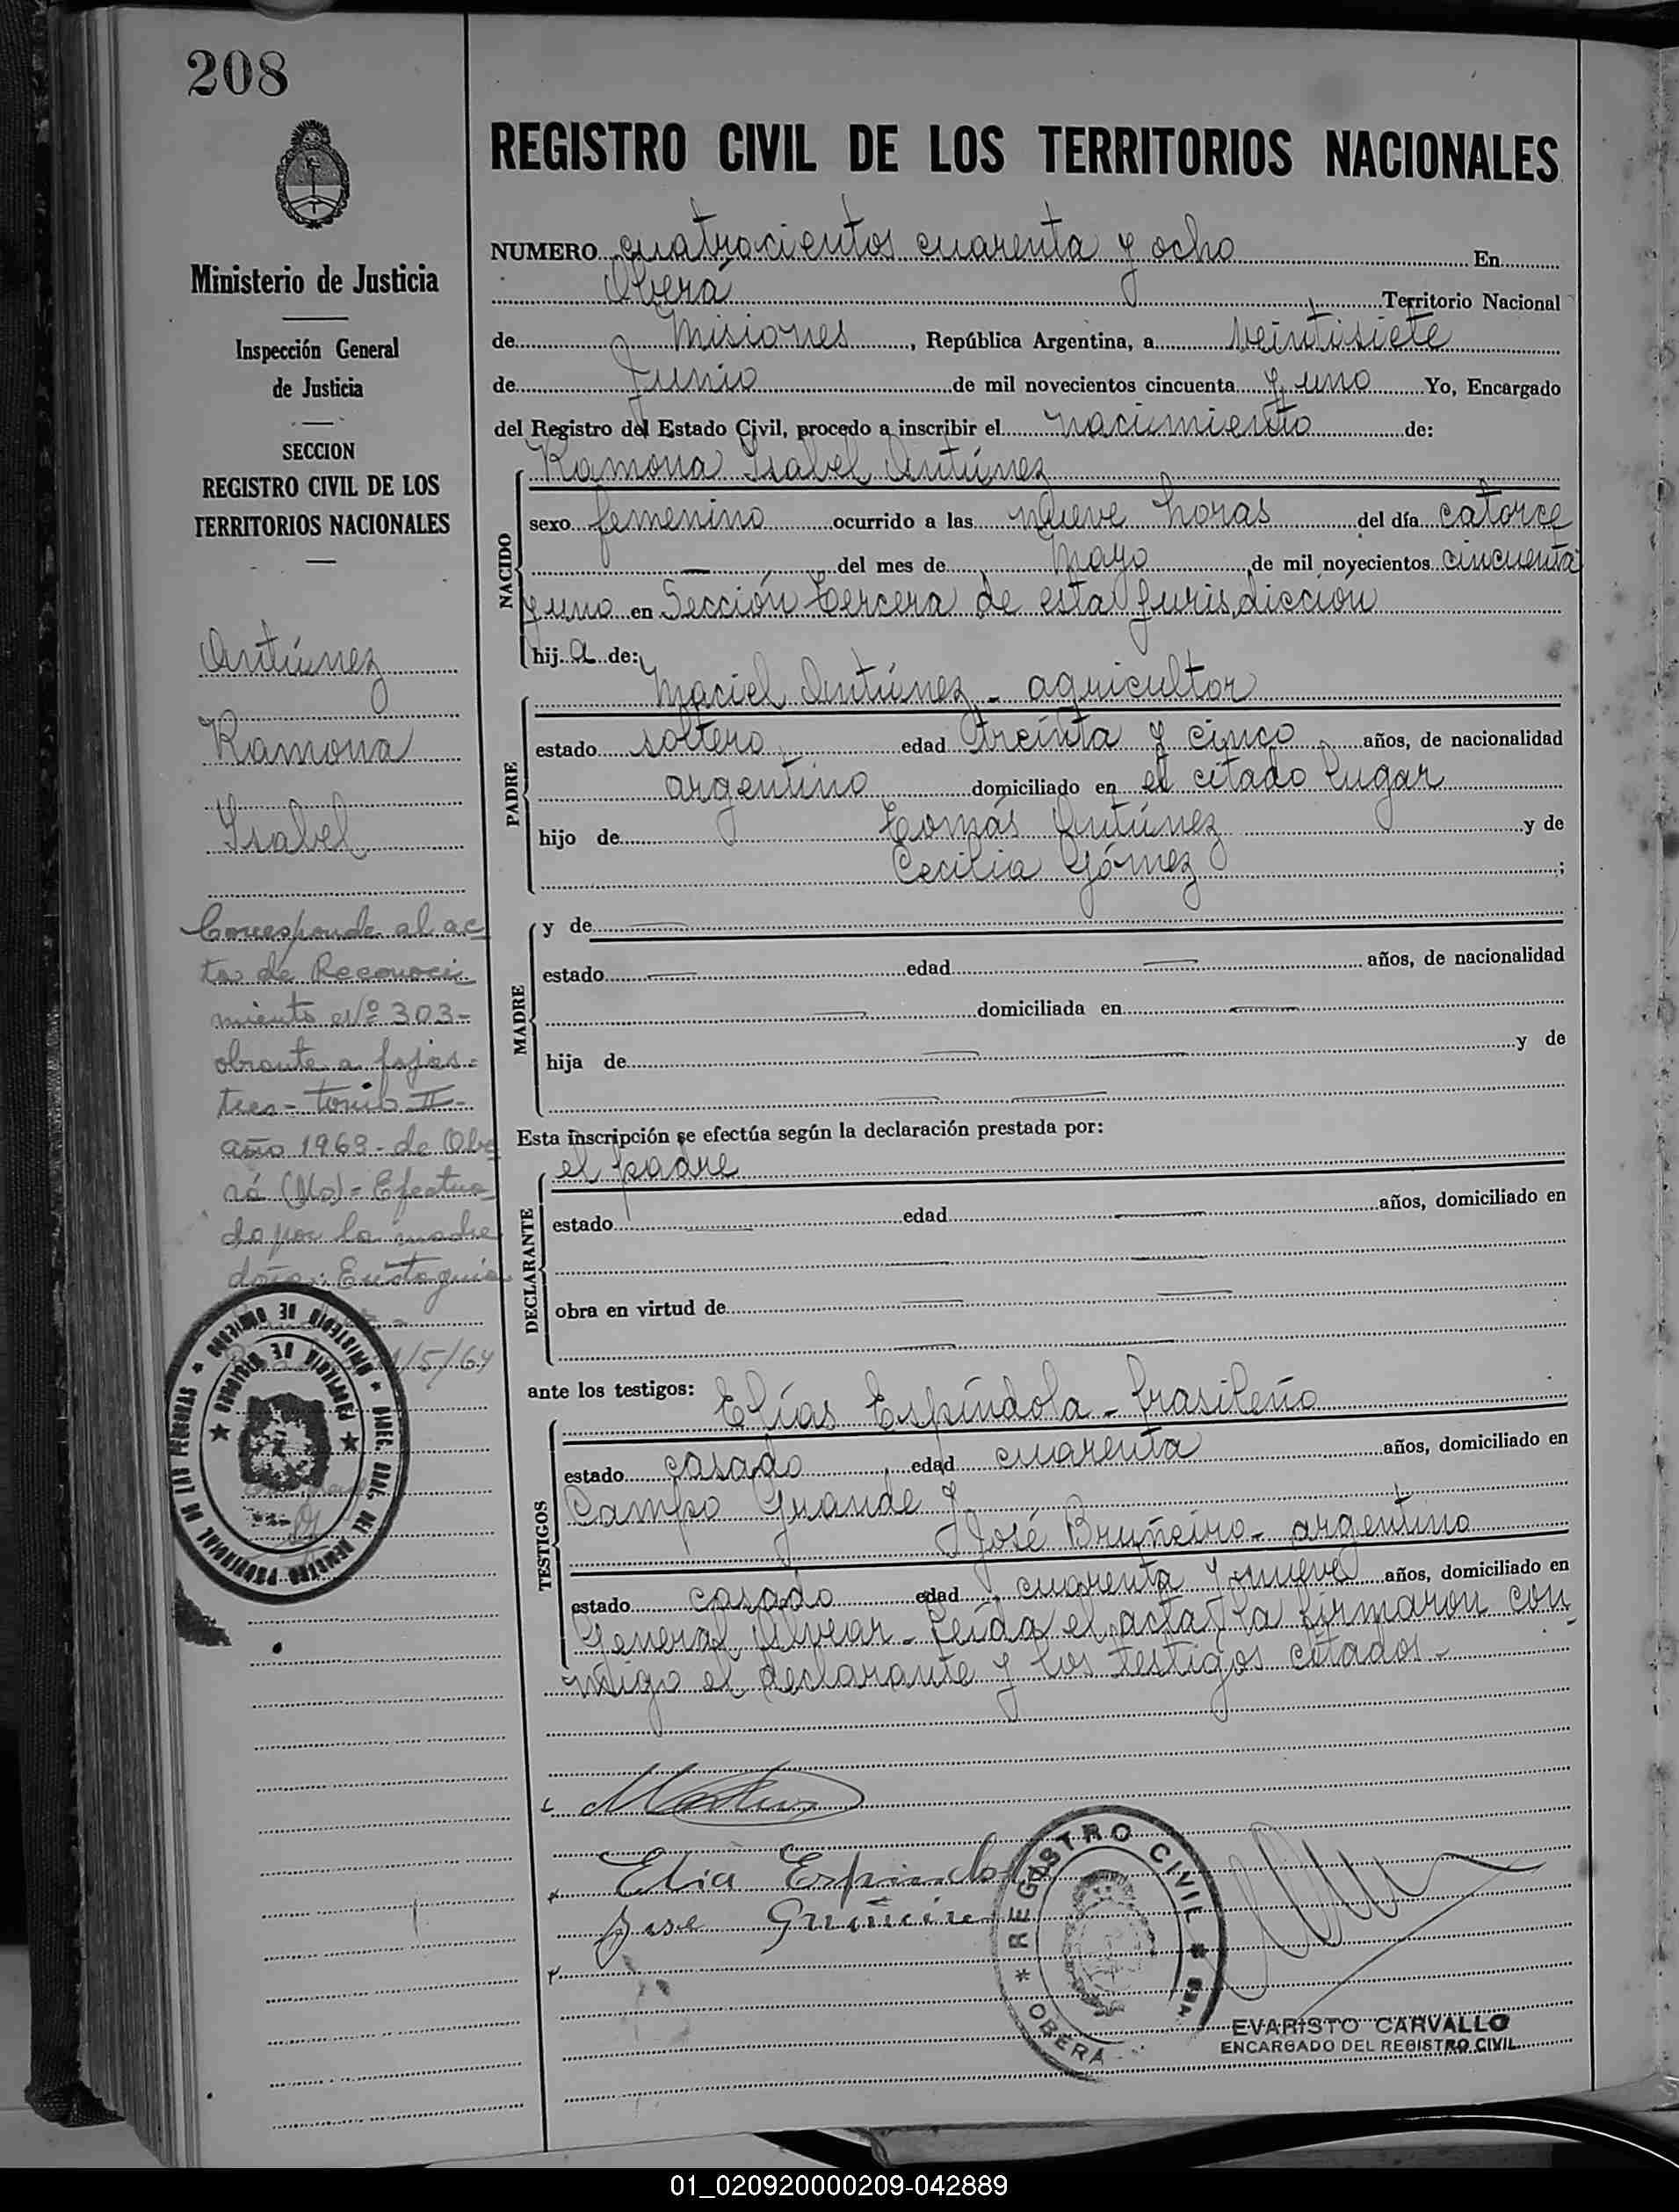 208
Ministerio de Justicia
Inspección General
de Justicia
SECCION
REGISTRO CIVIL DE LOS
TERRITORIOS NACIONALES
Antúnez
Ramona
Isabel
Corresponde al ac
ta de Reconoci
miento Nº 303-
obrante a fojas-
tres- tomo II-
año 1963- de Obe
rá (Ms)= Efectua
do por la madre
doña: Eustoquia
/5/64
REGISTRO CIVIL DE LOS TERRITORIOS NACIONALES
NUMERO cuatrocientos cuarenta y ocho En
Oberá Territorio Nacional
de Misiones, República Argentina, a veintisiete
de Junio de mil novecientos cincuenta y uno Yo, Encargado
del Registro del Estado Civil, procedo a inscribir el nacimiento de:
Ramona Isabel Antúnez
NACIDO
sexo femenino ocurrido a las nueve horas del día catorce
— del mes de Mayo de mil novecientos cincuenta
y uno en Sección tercera de esta jurisdicción
hij a de:
Maciel Antúnez - agricultor
PADRE
estado soltero edad treinta y cinco años, de nacionalidad
argentino domiciliado en el citado lugar
hijo de Tomás Antúnez y de
Cecilia Gómez ;
MADRE
y de —
estado — edad — años, de nacionalidad
— domiciliada en —
hija de — — y de
— —
Esta inscripción se efectúa según la declaración prestada por:
el padre
DECLARANTE
estado — edad — años, domiciliado en
—
obra en virtud de — —
— —
ante los testigos:
Elías Espíndola - brasileño
TESTIGOS
estado casado edad cuarenta años, domiciliado en
Campo Grande y
José Bruñeiro - argentino
estado casado edad cuarenta y nueve años, domiciliado en
General Alvear - Leída el acta, la firmaron con
migo el declarante y los testigos citados.-
Elia Espindola
Jose Gruñeiro
* REGISTRO CIVIL *
OBERA
EVARISTO CARVALLO
ENCARGADO DEL REGISTRO CIVIL
01_020920000209-042889